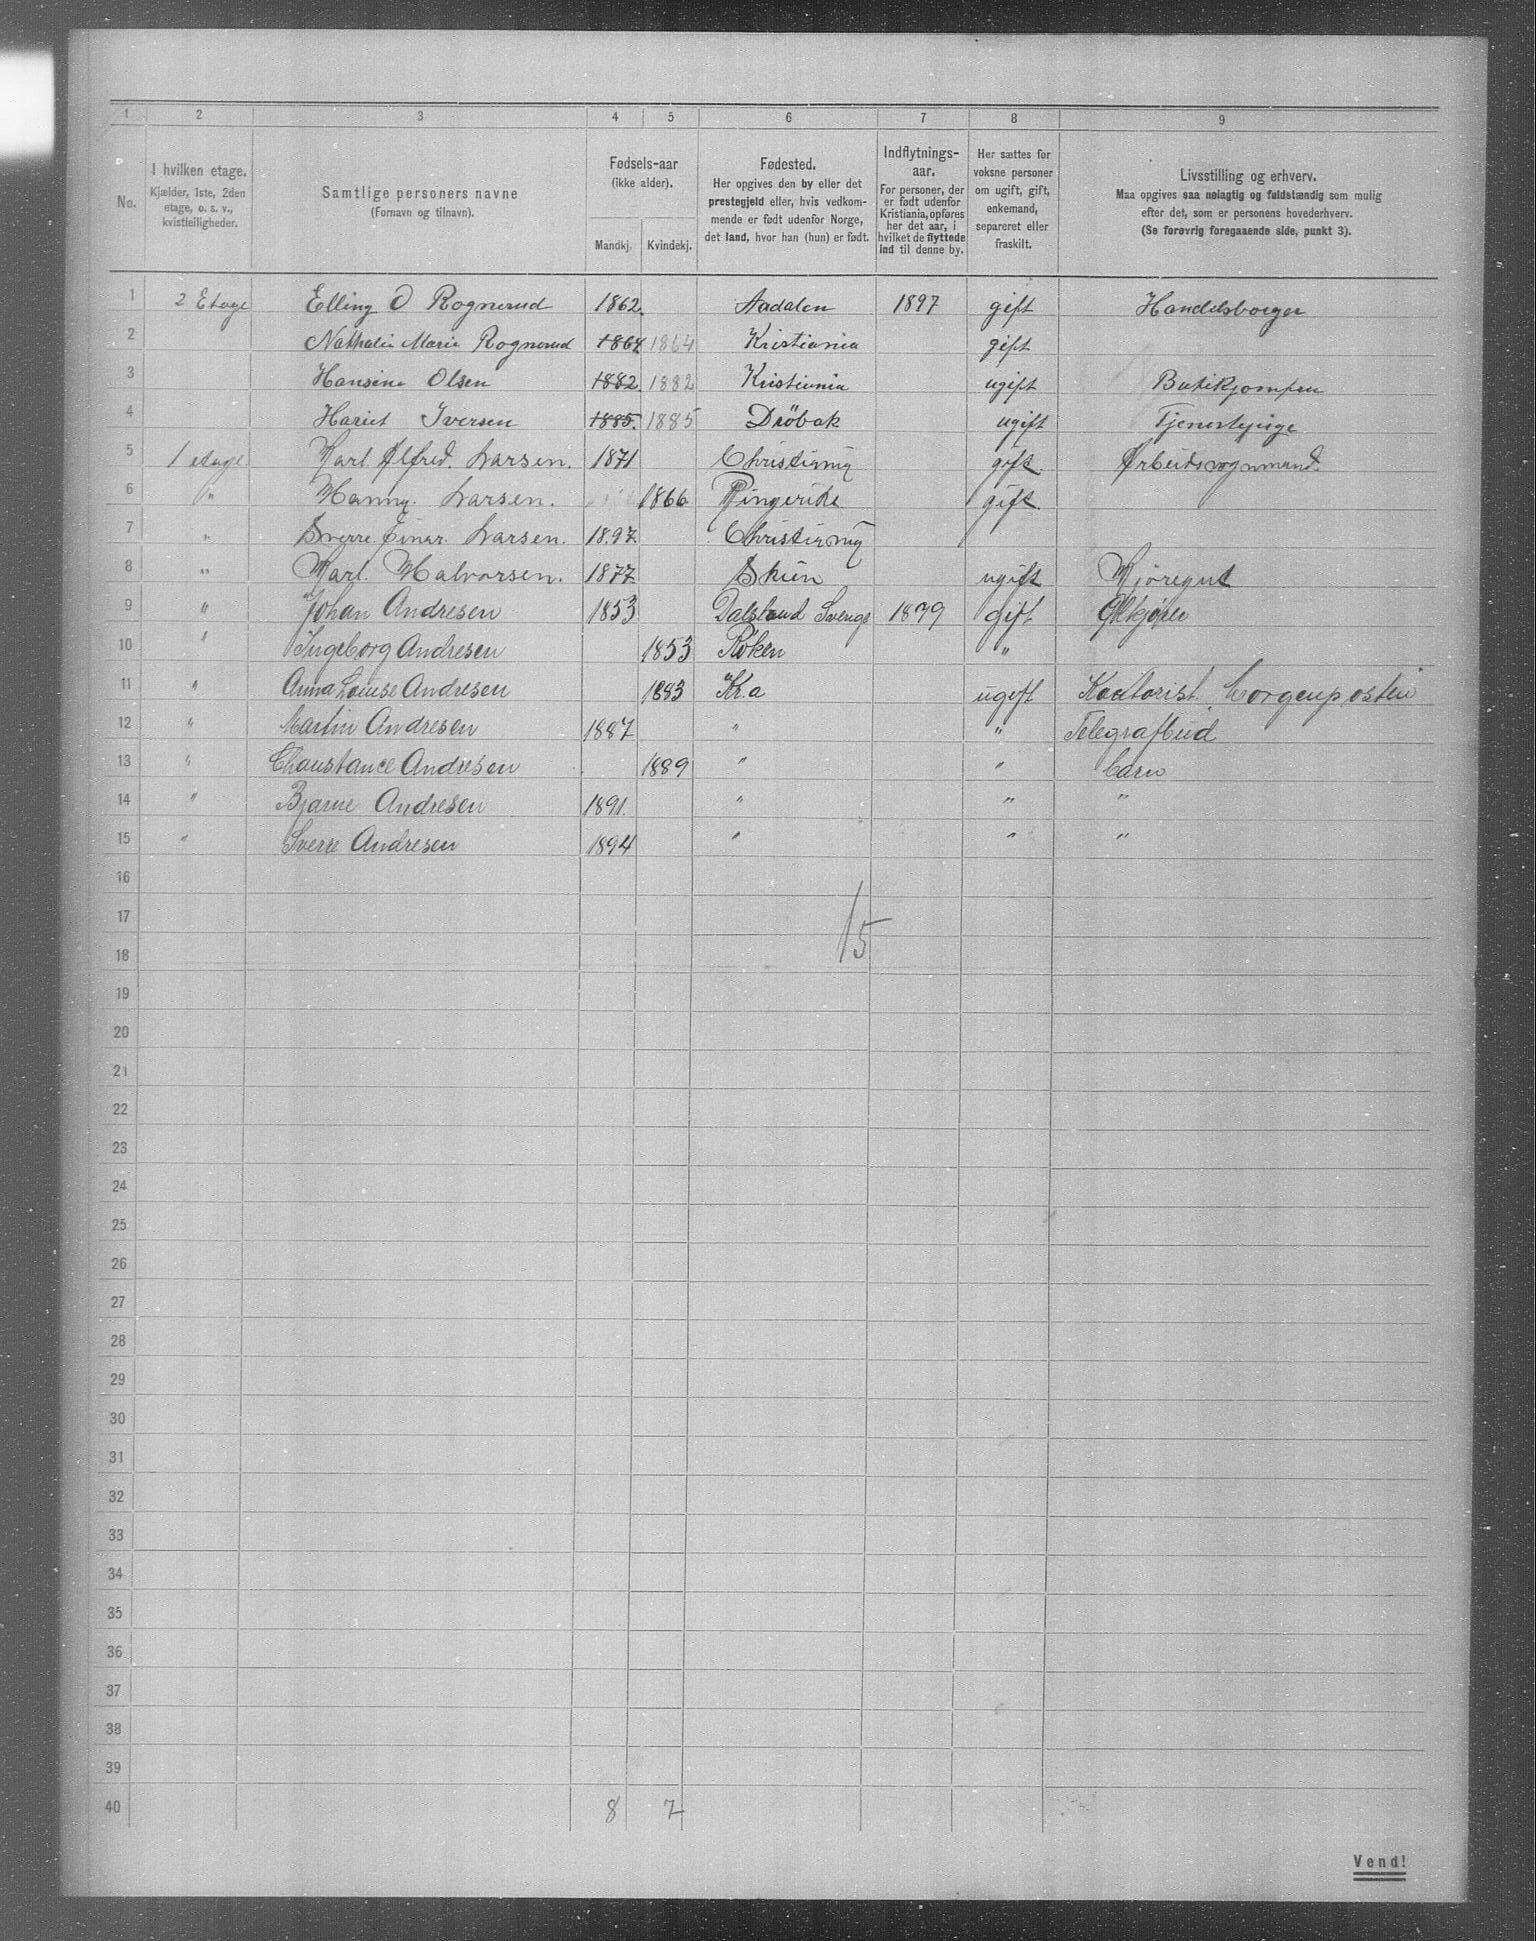 1 2 3 4 5 6 7 8 9
No.
I hvilken etage.
Kjælder, 1ste, 2den
etage, o. s. v.,
kvistleiligheder.
Samtlige personers navne
(Fornavn og tilnavn).
Fødsels-aar
(ikke alder).
Mandkj. Kvindekj.
Fødested.
Her opgives den by eller det
prestegjeld eller, hvis vedkom-
mende er født udenfor Norge,
det land, hvor han (hun) er født.
Indflytnings-
aar.
For personer, der
er født udenfor
Kristiania, opføres
her det aar, i
hvilket de flyttede
ind til denne by.
Her sættes for
voksne personer
om ugift, gift,
enkemand,
separeret eller
fraskilt.
Livsstilling og erhverv.
Maa opgives saa nøiagtig og fuldstændig som mulig
efter det, som er personens hovederhverv.
(Se forøvrig foregaaende side, punkt 3).
1 2 Etage Elling O Rognerud 1862. Aadalen 1897 gift Handelsborger
2 Nathalie Marie Rognerud 1864 1864 Kristiania gift
3 Hansine Olsen 1882. 1882 Kristiania ugift
4 Hariet Iversen 1885. 1885 Dröbak ugift Tjenestepige
5 1 etage Karl Alfred. Larsen. 1871 Christiania gift. Arbeidsvognmand.
6 " Hanny. Larsen. 1866 Ringerike gift.
7 " Sverre Einar. Larsen. 1897 Christiania
8 " Karl. Halvorsen. 1877 Skien ugift Kjøregut
9 " Johan Andresen 1853 Dalsland Sverige 1879 gift Ølkjører
10 " Ingeborg Andresen 1853 Røken "
11 " Anna Louise Andresen 1883 Kr.a ugift Kontorist Morgenposten
12 " Martin Andresen 1887 " " Telegrafbud
13 " Chaustance Andresen 1889 " " barn
14 " Bjarne Andresen 1891. " " "
15 " Sverre Andresen 1894 " " "
16
17 15
18
19
20
21
22
23
24
25
26
27
28
29
30
31
32
33
34
35
36
37
38
39
40 8 7
Vend!